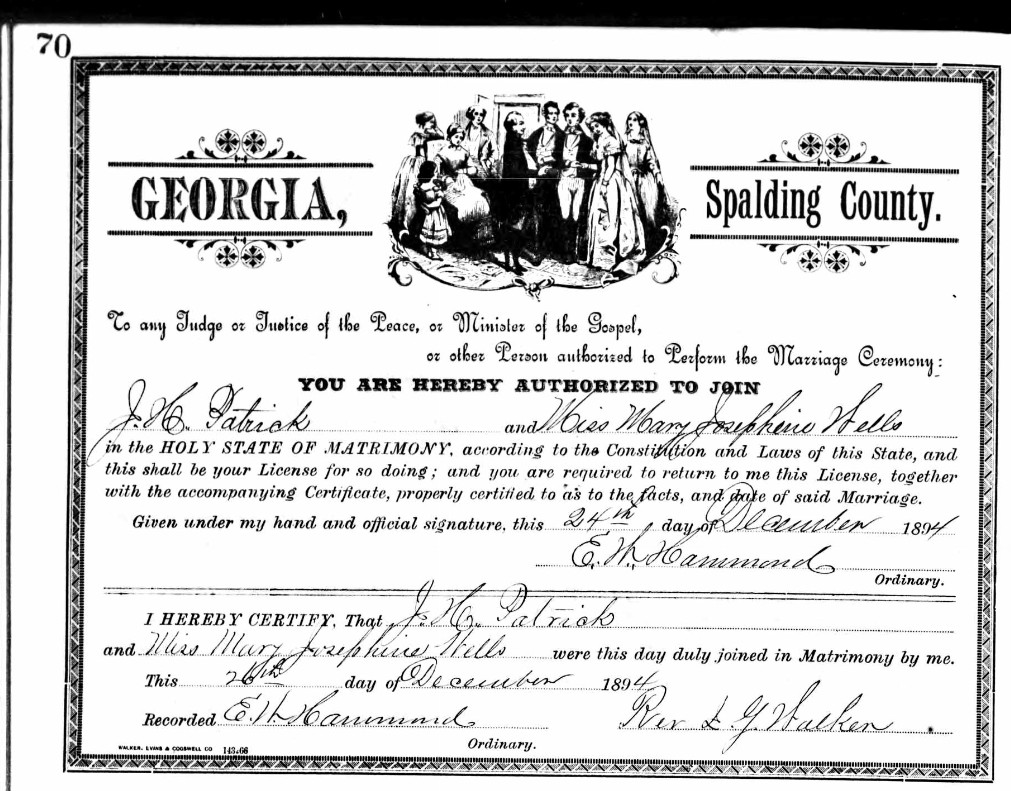 70
GEORGIA,
Spalding County.
To any Judge or Justice of the Peace, or Minister of the Gospel,
or other Person authorized to Perform the Marriage Ceremony:
YOU ARE HEREBY AUTHORIZED TO JOIN
J. H. Patrick and Miss Mary Josephine Wells
in the HOLY STATE OF MATRIMONY, according to the Constitution and Laws of this State, and
this shall be your License for so doing; and you are required to return to me this License, together
with the accompanying Certificate, properly certified to as to the facts, and date of said Marriage.
Given under my hand and official signature, this 24th day of December 1894
E. W. Hammond
Ordinary.
I HEREBY CERTIFY, That J. H. Patrick
and Miss Mary Josephine Wells were this day duly joined in Matrimony by me.
This 26th day of December 1894
Recorded E. W. Hammond Rev L G. Walker
Ordinary.
WALKER, EVANS & COGSWELL CO 143,66